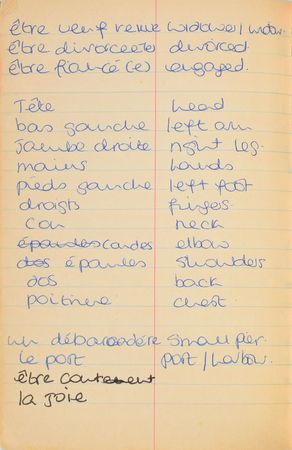 être veuf veuve widower/widow
être divorcé(e) divorced
être fiancé(e) engaged
Tête head
bas gauche left arm
jambe droite right leg.
mains hands
pieds gauche left foot
droigts fingers
cou neck
épaules coudes elbow
dos épaules shoulders
dos back
poitrine chest.
un débarcadère small pier.
le port port/harbour.
être content
la joie